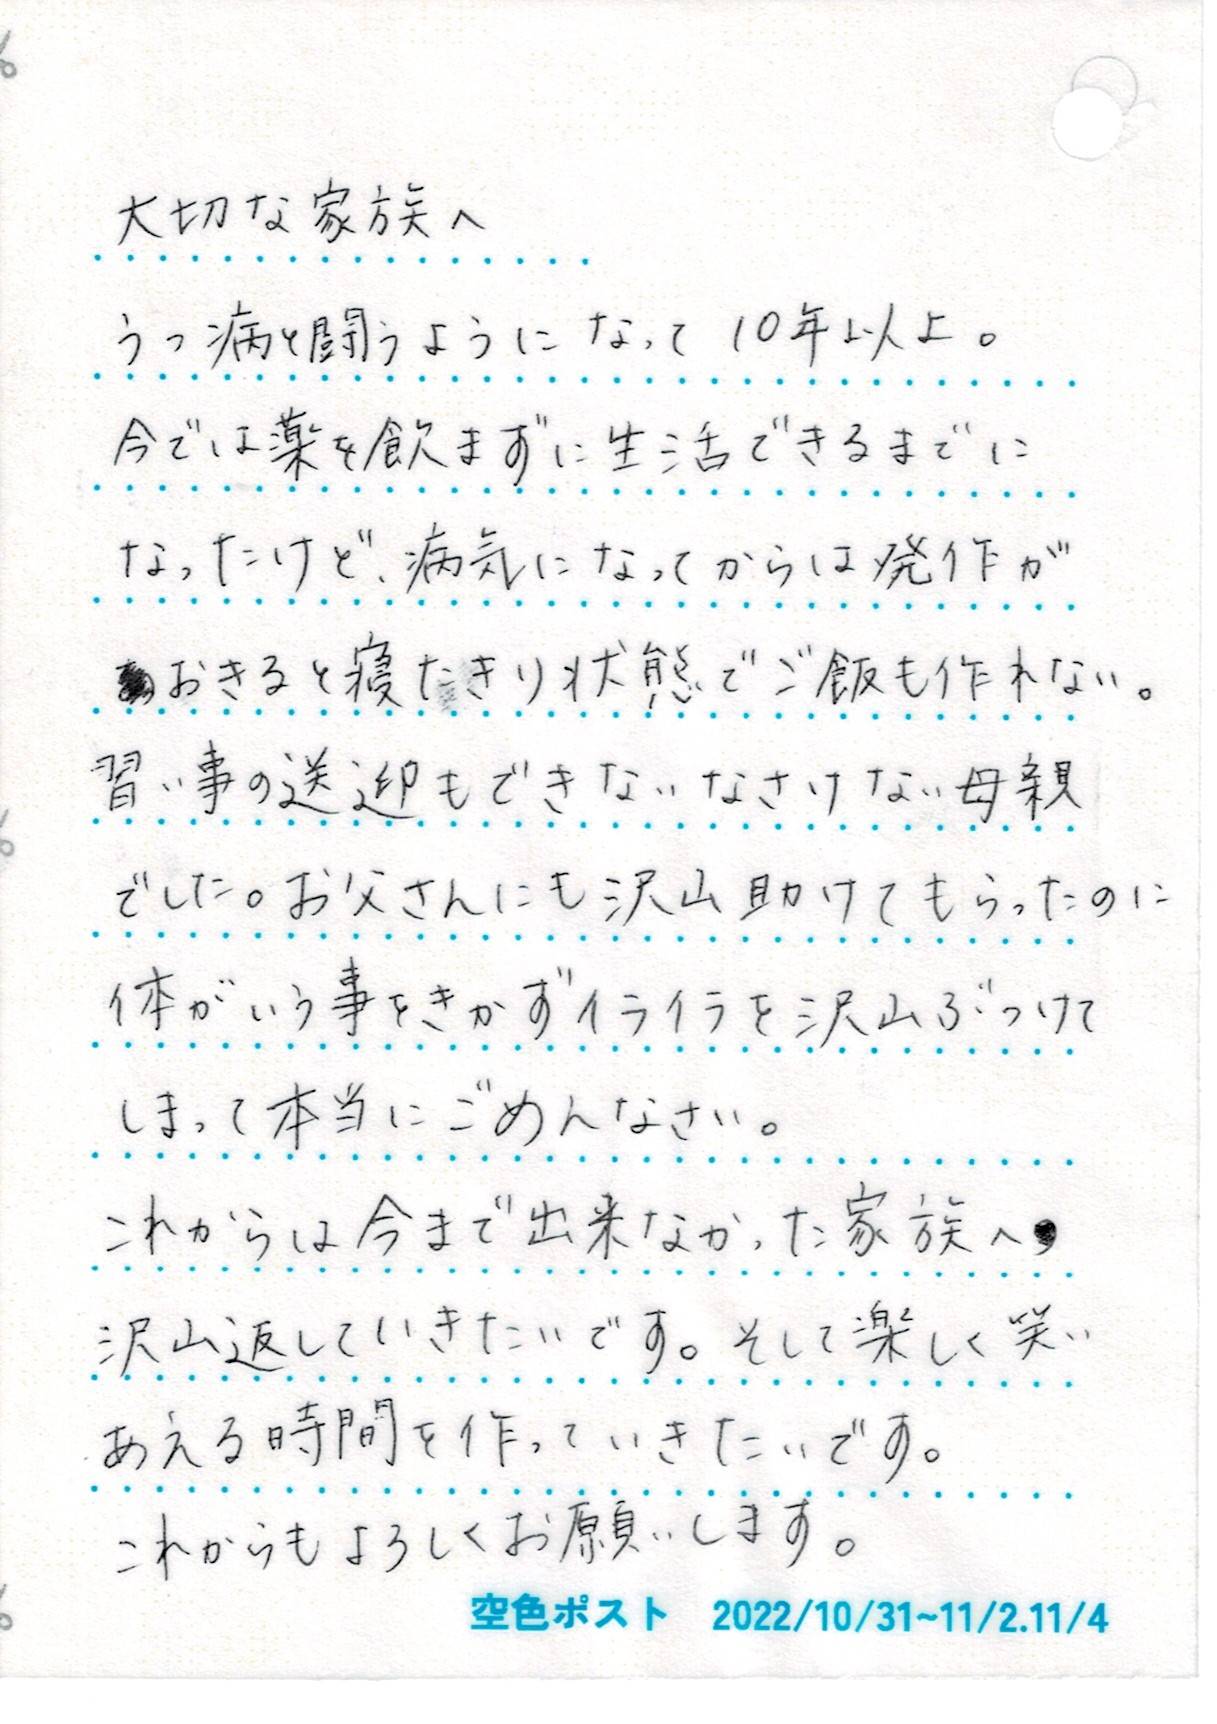 大切な家族へ
うつ病と闘うようになって10年以上。
今では薬を飲まずに生活できるまでに
なったけど、病気になってからは発作が
おきると寝たきり状態でご飯も作れない。
習い事の送迎もできないなさけない母親
でした。お父さんにも沢山助けてもらったのに
体がいう事をきかずイライラを沢山ぶつけて
しまって本当にごめんなさい。
これからは今まで出来なかった家族へ
沢山返していきたいです。そして楽しく笑い
あえる時間を作っていきたいです。
これからもよろしくお願いします。
空色ポスト 2022/10/31~11/2.11/4